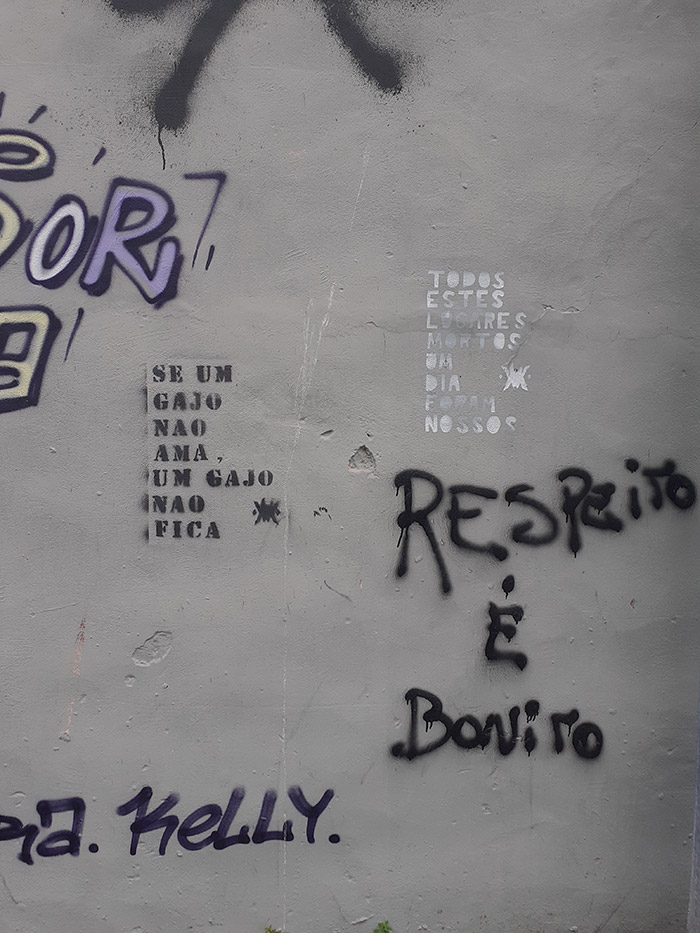 OR
TODOS
ESTES
LUGARES
MORTOS
UM
DIA
FORAM
NOSSOS
SE UM
GAJO
NAO
AMA,
UM GAJO
NAO
FICA
RESPEITO
É
BONITO
KELLY.